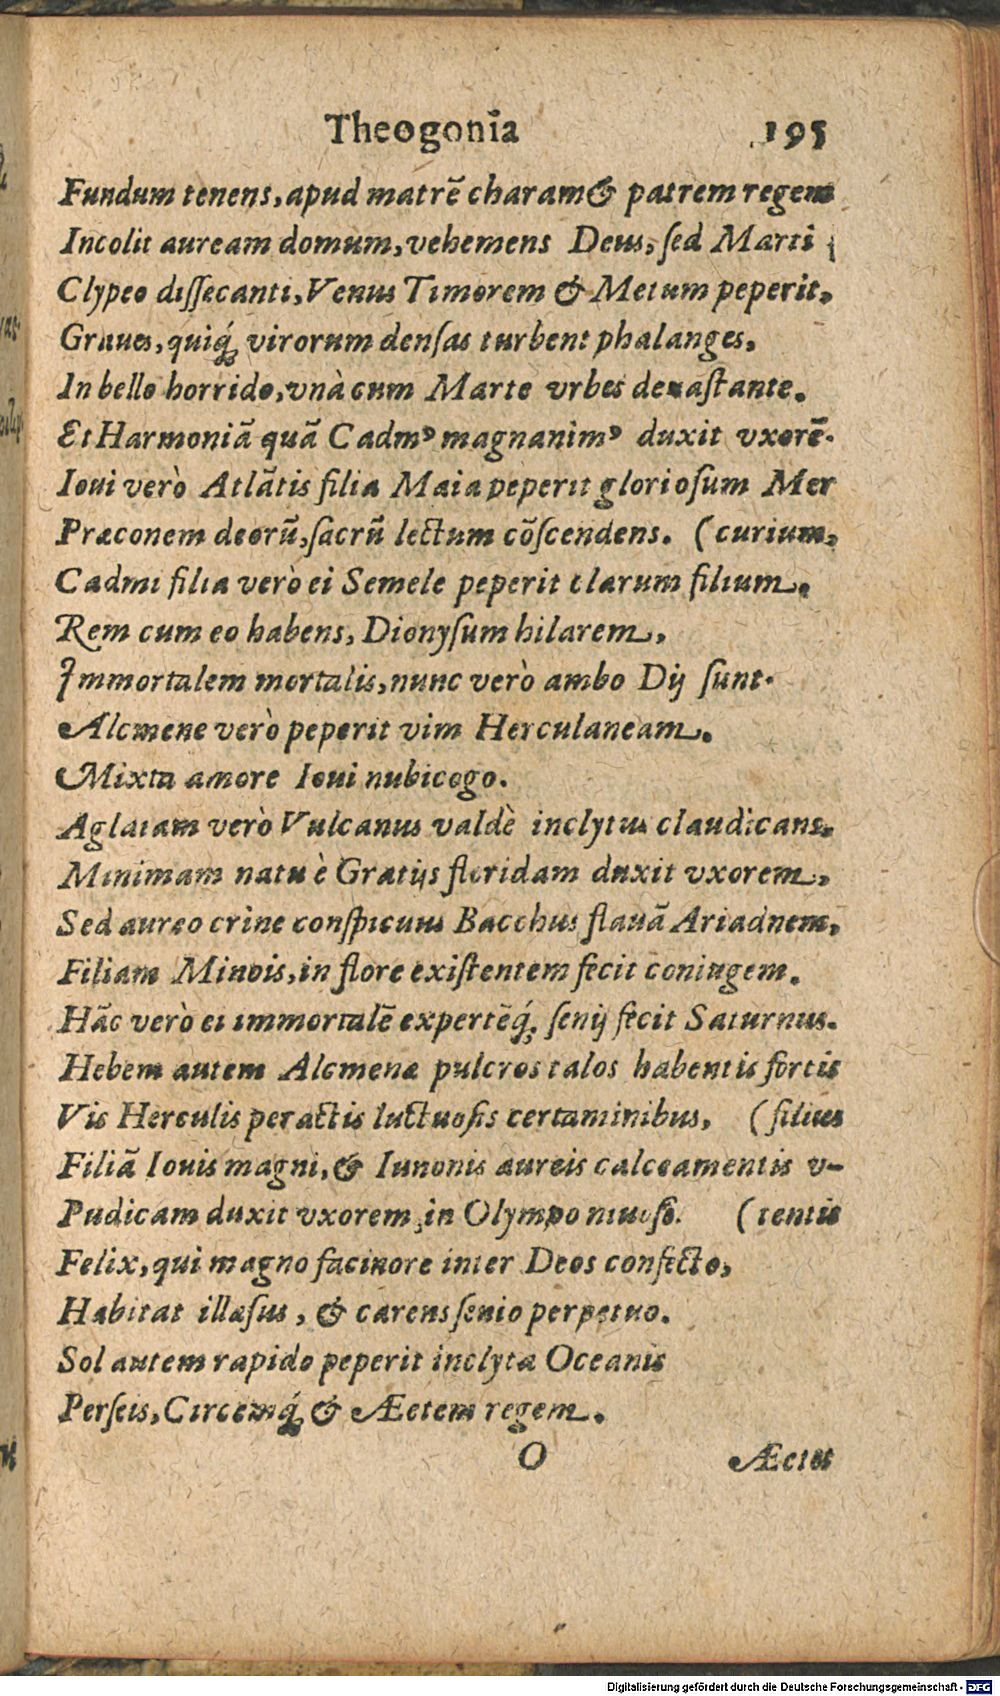 Theogonia 195
Fundum tenens, apud matrẽ charam & patrem regem
Incolit auream domum, vehemens Deus, sed Marti
Clypeo dissecanti, Venus Timorem & Metum peperit,
Graues, quiq́; virorum densas turbent phalanges,
In bello horrido, vnà cum Marte vrbes deuastante.
Et Harmoniã quã Cadmꝰ magnanimꝰ duxit vxorẽ.
Ioui verò Atlãtis filia Maia peperit gloriosum Mer
Præconem deorũ, sacrũ lectum cõscendens. (curium,
Cadmi filia verò ei Semele peperit clarum filium,
Rem cum eo habens, Dionysum hilarem,
Immortalem mortalis, nunc verò ambo Dij sunt.
Alcmene verò peperit vim Herculaneam.
Mixta amore Ioui nubicogo.
Aglaiam verò Vulcanus valdè inclytus claudicans,
Minimam natu è Gratijs floridam duxit vxorem,
Sed aureo crine conspicuus Bacchus flauã Ariadnem,
Filiam Minois, in flore existentem fecit coniugem.
Hãc verò ei immortalẽ expertẽq́; senij fecit Saturnus.
Hebem autem Alcmenæ pulcros talos habentis fortis
Vis Herculis peractis luctuosis certaminibus, (filius
Filiã Iouis magni, & Iunonis aureis calceamentis v-
Pudicam duxit vxorem, in Olympo niuoso. (tentis
Felix, qui magno facinore inter Deos confecto,
Habitat illæsus, & carens senio perpetuo.
Sol autem rapido peperit inclyta Oceanis
Perseis, Circemq́; & Æetem regem.
O Æetes
Digitalisierung gefördert durch die Deutsche Forschungsgemeinschaft - DFG